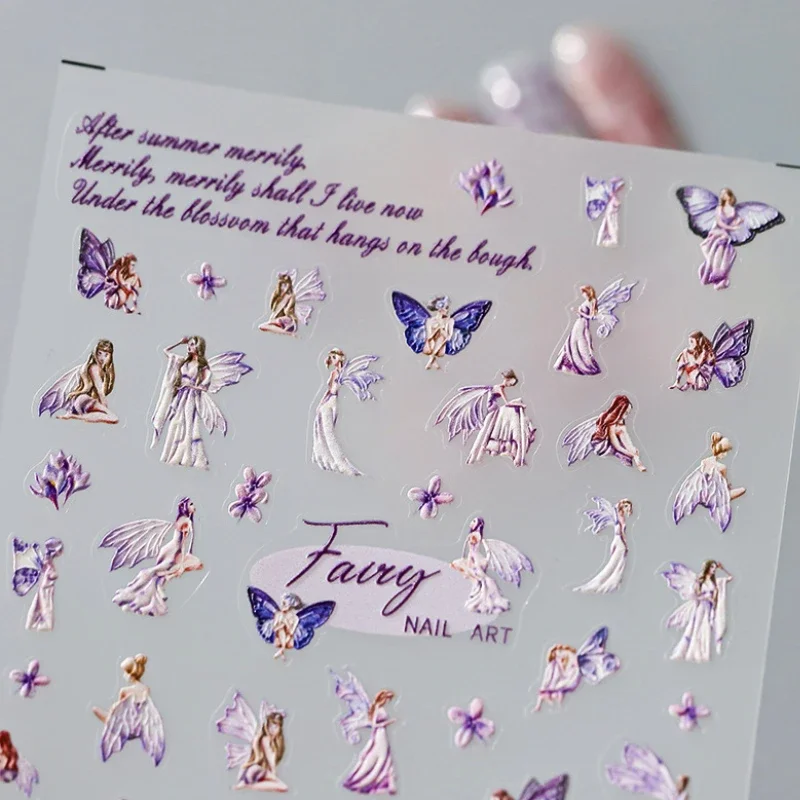 After summer merrily.
Merrily, merrily shall I live now
Under the blossvom that hangs on the bough.
Fairy
NAIL ART